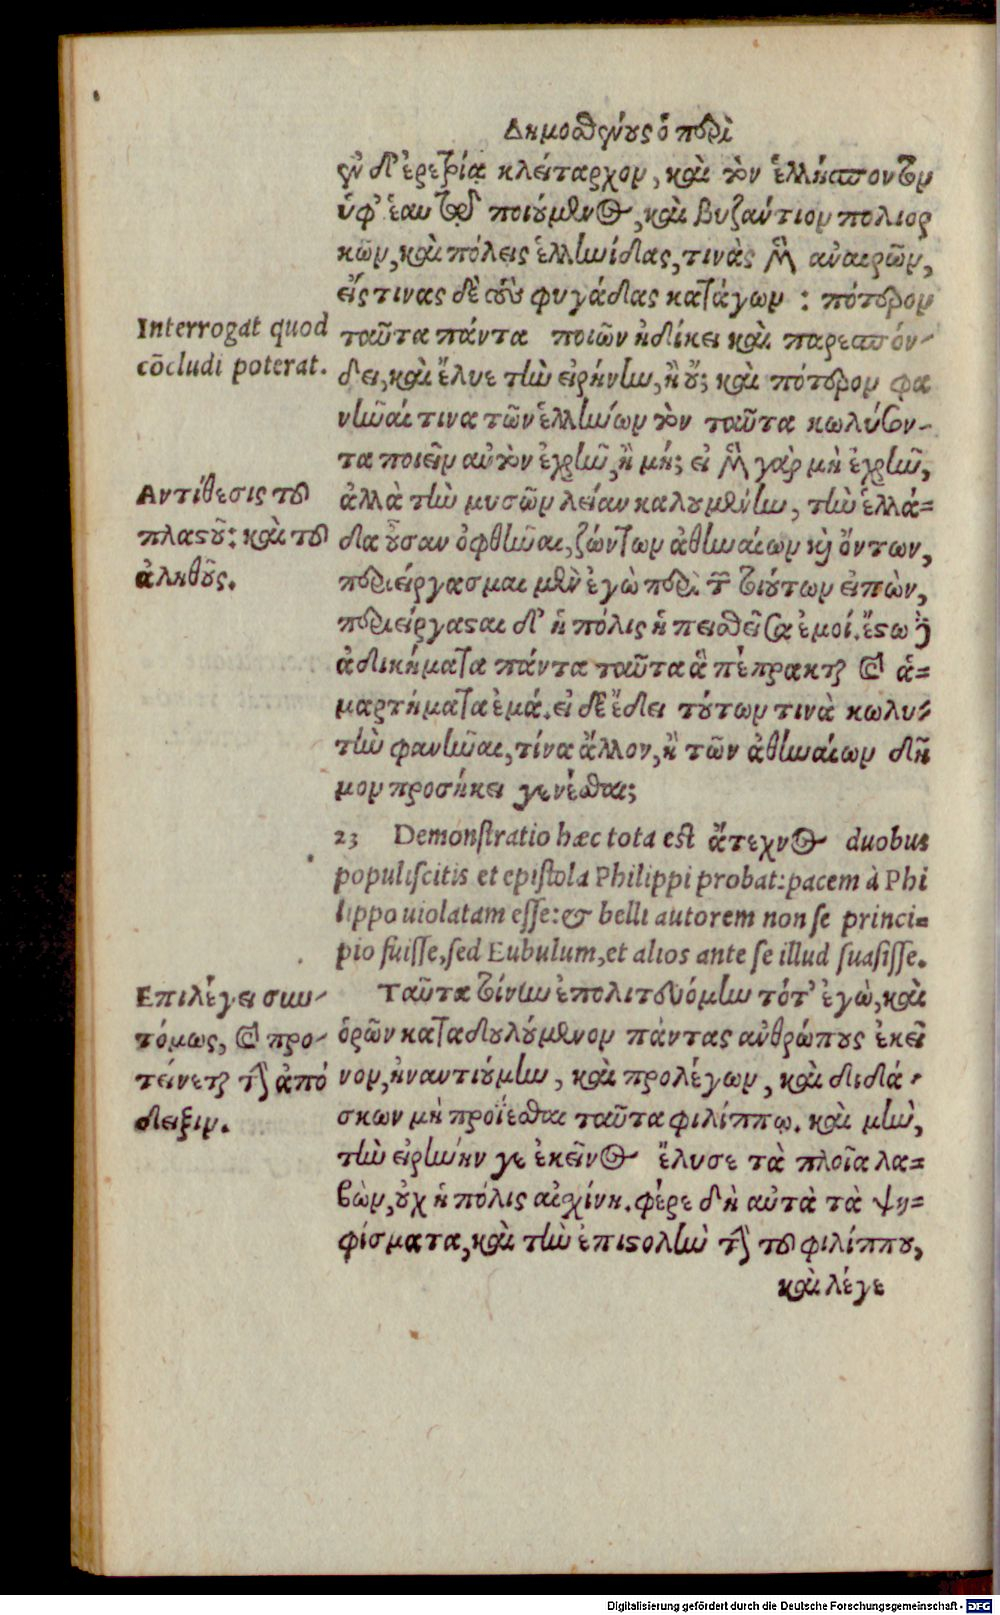 Δημοσθένους ὁ περὶ
ἐν δ' ἐρετρίᾳ κλείταρχον, καὶ τὸν ἑλλήσποντον
ὑφ' ἑαυτῷ ποιούμενος, καὶ βυζάντιον πολιορ
κῶν, καὶ πόλεις ἑλληνίδας, τινὰς μὲν ἀναιρῶν,
εἴς τινας δὲ τοὺς φυγάδας κατάγων : πότερον
Interrogat quod
cōcludi poterat.
ταῦτα πάντα ποιῶν ἠδίκει καὶ παρεσπόν-
δει, καὶ ἔλυε τὴν εἰρήνην, ἢ οὔ; καὶ πότερον φα
νῆναί τινα τῶν ἑλλήνων τὸν ταῦτα κωλύσον-
τα ποιεῖν αὐτὸν ἐχρῆν, ἢ μή; εἰ μὲν γὰρ μὴ ἐχρῆν,
Αντίθεσις τοῦ
πλαστοῦ: καὶ τοῦ
ἀληθοῦς.
ἀλλὰ τὴν μυσῶν λείαν καλουμένην, τὴν ἑλλά=
δα οὖσαν ὀφθῆναι, ζώντων ἀθηναίων καὶ ὄντων,
περιείργασμαι μὲν ἐγὼ περὶ τῶν τούτων εἰπὼν,
περιείργασται δ' ἡ πόλις ἡ πεισθεῖσα ἐμοί. ἔστω δὲ
ἀδικήματα πάντα ταῦτα ἃ πέπρακται καὶ ἁ=
μαρτήματα ἐμά. εἰ δὲ ἔδει τούτων τινὰ κωλυ-
τὴν φανῆναι, τίνα ἄλλον, ἢ τῶν ἀθηναίων δῆ
μον προσήκει γενέσθαι;
23 Demonstratio hæc tota est ἄτεχνος duobus
populiscitis et epistola Philippi probat: pacem à Phi
lippo uiolatam esse: & belli autorem non se princi=
pio fuisse, sed Eubulum, et alios ante se illud suasisse.
Επιλέγει συν-
τόμως, καὶ προ-
τείνεται τὴν ἀπό
δειξιν.
Ταῦτα τοίνυν ἐπολιτευόμην τότ' ἐγὼ, καὶ
ὁρῶν καταδουλούμενον πάντας ἀνθρώπους ἐκεῖ
νον, ἠναντιούμην, καὶ προλέγων, καὶ διδά-
σκων μὴ προΐεσθαι ταῦτα φιλίππῳ. καὶ μὴν,
τὴν εἰρήνην γε ἐκεῖνος ἔλυσε τὰ πλοῖα λα=
βὼν, οὐχ ἡ πόλις αἰσχίνη. φέρε δὴ αὐτὰ τὰ ψη=
φίσματα, καὶ τὴν ἐπιστολὴν τὴν τοῦ φιλίππου,
καὶ λέγε
Digitalisierung gefördert durch die Deutsche Forschungsgemeinschaft - DFG